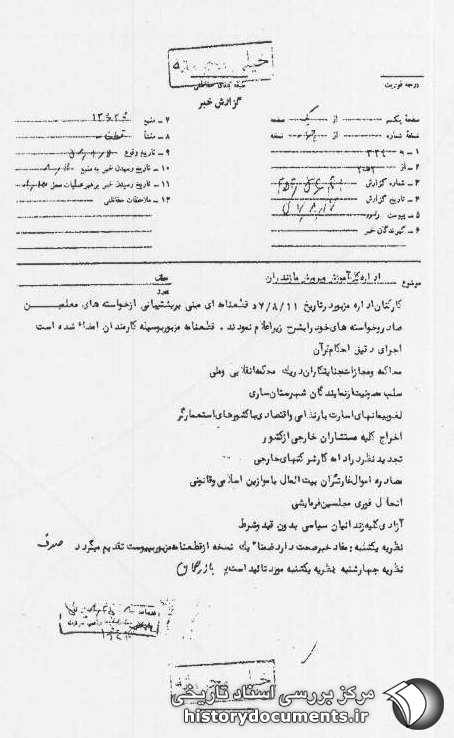 خیلی محرمانه
طبقه بندی حفاظتی
درجه فوریت
گزارش خبر
صفحه یکم از یک صفحه
نسخه شماره از نسخه
۱ – به ۳۳۴
۲ – از
۳ – شماره گزارش
۴ – تاریخ گزارش ۵۷/۸/۱۷
۵ – پیوست
۶ – گیرندگان خبر
۷ – منبع
۸ – منشأ
۹ – تاریخ وقوع
۱۰ – تاریخ رسیدن خبر به منبع
۱۱ – تاریخ رسیدن خبر برهبر عملیات محل
۱۲ – ملاحظات حفاظتی
موضوع اداره کل آموزش و پرورش مازندران
کارکنان اداره مزبور در تاریخ ۵۷/۸/۱۱ قطعنامه ای مبنی بر پشتیبانی از خواسته های معلمین
صادر و خواسته های خود را بشرح زیر اعلام نمودند . قطعنامه مزبور بوسیله کارمندان امضاء شده است
اجرای دقیق احکام قرآن
محاکمه و مجازات جنایتکاران در یک محکمه انقلابی و ملی
سلب مصونیت از نمایندگان شهرستان ساری
لغو پیمانهای اسارت بار نظامی و اقتصادی با کشورهای استعمارگر
اخراج کلیه مستشاران خارجی از کشور
تجدید نظر در ادامه کار شرکتهای خارجی
مصادره اموال غارتگران بیت المال با موازین اسلامی و قانونی
انحلال فوری مجلسین فرمایشی
آزادی کلیه زندانیان سیاسی بدون قید و شرط
نظریه یکشنبه : مفاد خبر صحت دارد ضمنا" یک نسخه از قطعنامه مزبور بپیوست تقدیم میگردد
نظریه چهارشنبه نظریه یکشنبه مورد تائید است
خیلی محرمانه
مرکز بررسی اسناد تاریخی
historydocuments.ir